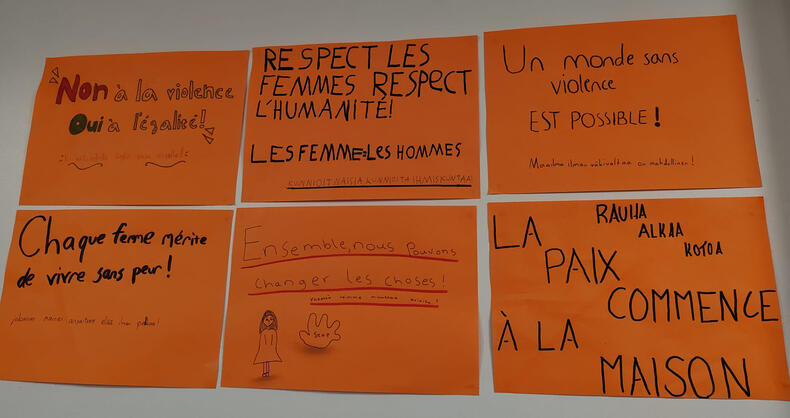 Non à la violence
Oui à l'égalité!
RESPECT LES
FEMMES RESPECT
L'HUMANITÉ!
LES FEMME=LES HOMMES
KUNNIOITNAISIA, KUNNIOITA IHMISKUNTAA!
Un monde sans
violence
EST POSSIBLE!
Maailma ilman väkivaltaa on mahdollinen!
Chaque femme mérite
de vivre sans peur!
jokainen nainen ansaitsee elää ilman pelkoa!
Ensemble, nous pouvons
changer les choses!
Yhdessä voimme muuttaa asioita!
STOP
RAUHA
ALKAA
KOTOA
LA
PAIX
COMMENCE
À LA
MAISON